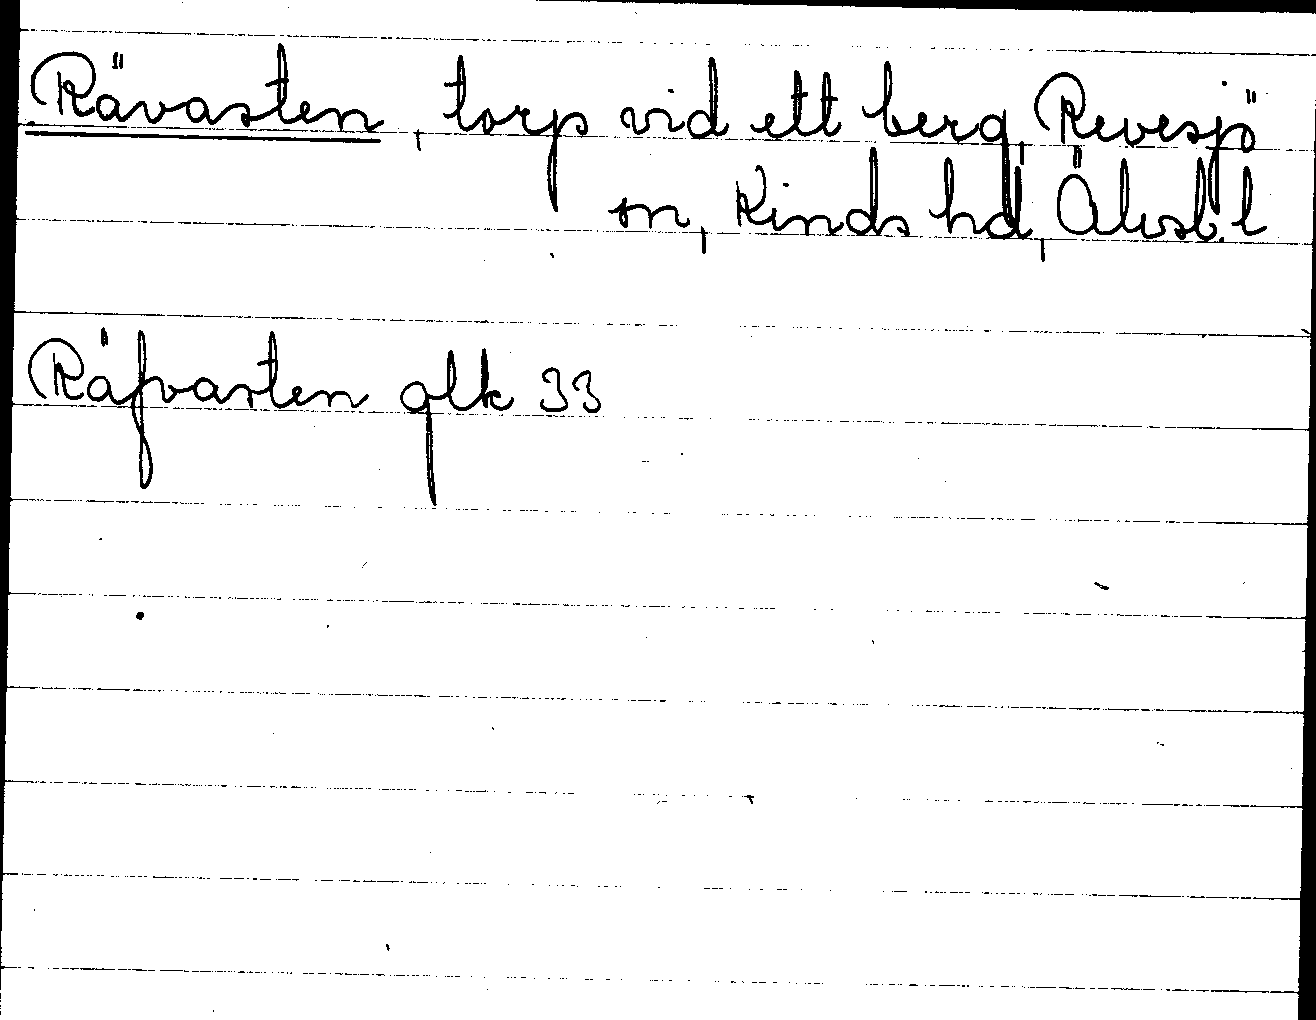 Rävasten, torp vid ett berg, Revesjö
sn, Kinds hd, Älvsb. l
Räfvasten glk 33